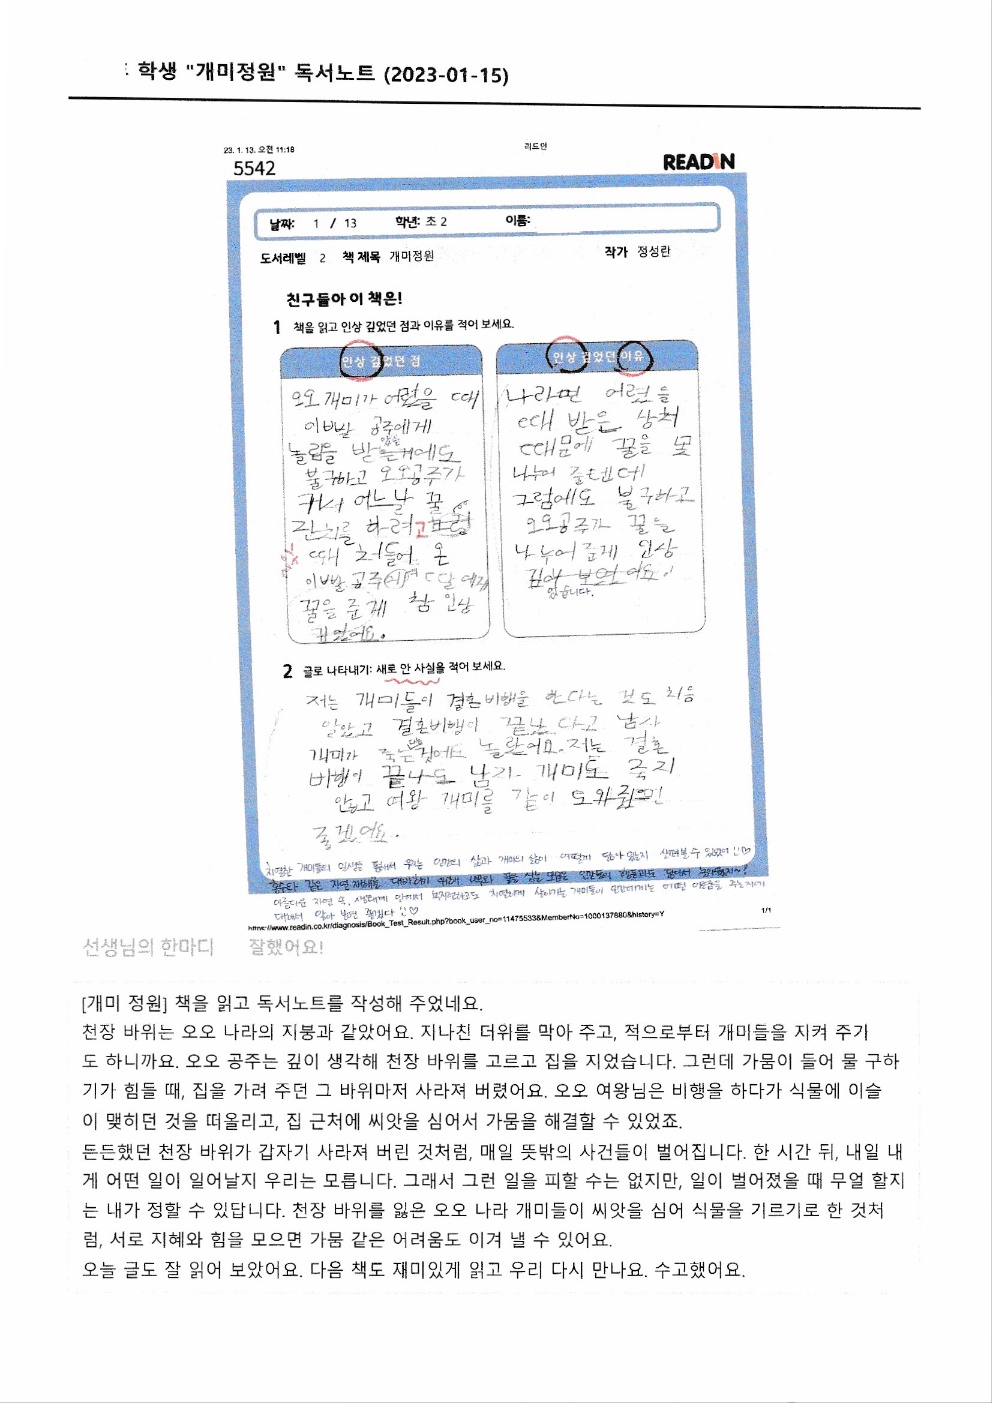 : 학생 "개미정원" 독서노트 (2023-01-15)
23. 1. 13. 오전 11:18
리드인
5542
READiN
날짜: 1 / 13 학년: 초 2 이름:
도서레벨 2 책 제목 개미정원 작가 정성란
친구들아 이 책은!
1 책을 읽고 인상 깊었던 점과 이유를 적어 보세요.
인상 깊었던 점
오오 개미가 어렸을 때
이빨 공주에게
놀림을 받
불구하고 오오공주가
커서 어느날 꿀
잔치를 하려고
때 쳐들어 온
이빨 공주
꿀을 준게 참 인상
인상 깊었던 이유
나라면 어렸을
때 받은 상처
때문에 꿀을 못
나누어 줄텐데
그럼에도 불구하고
오오공주가 꿀을
나누어 준게 인상
깊어 보였어요!
었습니다.
2 글로 나타내기: 새로 안 사실을 적어 보세요.
저는 개미들이 결혼비행을 한다는 것도 처음
알았고 결혼비행이 끝난다고 남자
개미가 죽는 것에도 놀랐어요. 저는 결혼
비행이 끝나도 남자 개미도 죽지
않고 여왕 개미를 같이 도와줬으면
좋겠어요.
치열한 개미들의 인생을 통해서 우리는 인간의 삶과 개미의 삶이 어떻게 닮아 있는지 살펴볼 수 있었어
아름다운 자연 속, 생태계 안에서 치열하게 살아가는 개미들이 인간에게는 어떤 이로움을 주는지에
대해서 알아 보면 좋겠다
https://www.readin.co.kr/diagnosis/Book_Test_Result.php?book_user_no=11475533&MemberNo=1000137680&history=Y
1/1
선생님의 한마디 잘했어요!
[개미 정원] 책을 읽고 독서노트를 작성해 주었네요.
천장 바위는 오오 나라의 지붕과 같았어요. 지나친 더위를 막아 주고, 적으로부터 개미들을 지켜 주기
도 하니까요. 오오 공주는 깊이 생각해 천장 바위를 고르고 집을 지었습니다. 그런데 가뭄이 들어 물 구하
기가 힘들 때, 집을 가려 주던 그 바위마저 사라져 버렸어요. 오오 여왕님은 비행을 하다가 식물에 이슬
이 맺히던 것을 떠올리고, 집 근처에 씨앗을 심어서 가뭄을 해결할 수 있었죠.
든든했던 천장 바위가 갑자기 사라져 버린 것처럼, 매일 뜻밖의 사건들이 벌어집니다. 한 시간 뒤, 내일 내
게 어떤 일이 일어날지 우리는 모릅니다. 그래서 그런 일을 피할 수는 없지만, 일이 벌어졌을 때 무얼 할지
는 내가 정할 수 있답니다. 천장 바위를 잃은 오오 나라 개미들이 씨앗을 심어 식물을 기르기로 한 것처
럼, 서로 지혜와 힘을 모으면 가뭄 같은 어려움도 이겨 낼 수 있어요.
오늘 글도 잘 읽어 보았어요. 다음 책도 재미있게 읽고 우리 다시 만나요. 수고했어요.